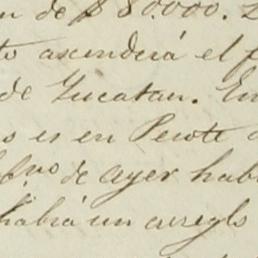 n de $80.000.
to ascenderá el f
de Yucatan. En
s es en Perote
de ayer hab
habrá un arreglo